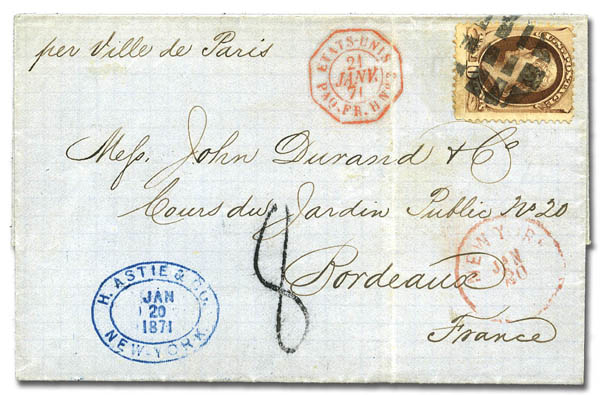 per Ville de Paris
ETATS-UNIS
21
JANV.
71
PAQ. FR. H Nº 2
Mess. John Durand & Cº
Cours du Jardin Public Nº 20
Bordeaux
France
8
NEW YORK
JAN
20
H. ASTIE & CO.
JAN
20
1871
NEW-YORK